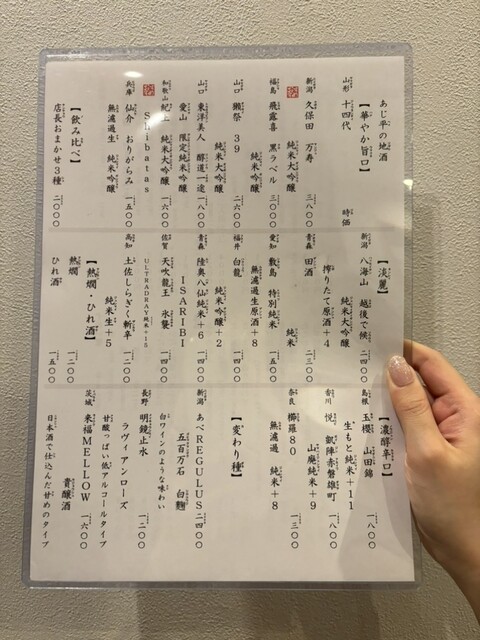 あじ平の地酒
【華やか旨口】
山形 十四代 時価
新潟 久保田 万寿
純米大吟醸 三八〇〇
福島 飛露喜 黒ラベル
純米吟醸 三〇〇〇
山口 獺祭 39
純米大吟醸 二六〇〇
山口 東洋美人 醇道一途 一八〇〇
愛山 限定純米吟醸
和歌山 紀土 純米大吟醸 一六〇〇
Shibatas
兵庫 仙介 おりがらみ 一五〇〇
無濾過生 純米吟醸
【飲み比べ】
店長おまかせ3種 二〇〇〇
【淡麗】
新潟 八海山 越後で候 二四〇〇
純米大吟醸
搾りたて原酒+4
青森 田酒 純米 二三〇〇
愛知 敷島 特別純米 一五〇〇
無濾過生原酒+8
福井 白龍 純米吟醸+2 一四〇〇
青森 陸奥八仙純米+6 一四〇〇
ISARIBI
佐賀 天吹龍王 氷襲 一四〇〇
ULTRADRAY純米+15
高知 土佐しらぎく斬辛 一二〇〇
純米生+5
【熱燗・ひれ酒】
熱燗 一二〇〇
ひれ酒 一五〇〇
【濃醇辛口】
島根 玉櫻 山田錦 一八〇〇
生もと純米+11
香川 悦 凱陣赤磐雄町 一八〇〇
山廃純米+9
奈良 櫛羅80 一三〇〇
無濾過 純米+8
【変わり種】
新潟 あべREGULUS 二四〇〇
五百万石 白麹
白ワインのような味わい
長野 明鏡止水 一二〇〇
ラヴィアンローズ
甘酸っぱい低アルコールタイプ
茨城 来福MELLOW 一六〇〇
貴醸酒
日本酒で仕込んだ甘めのタイプ